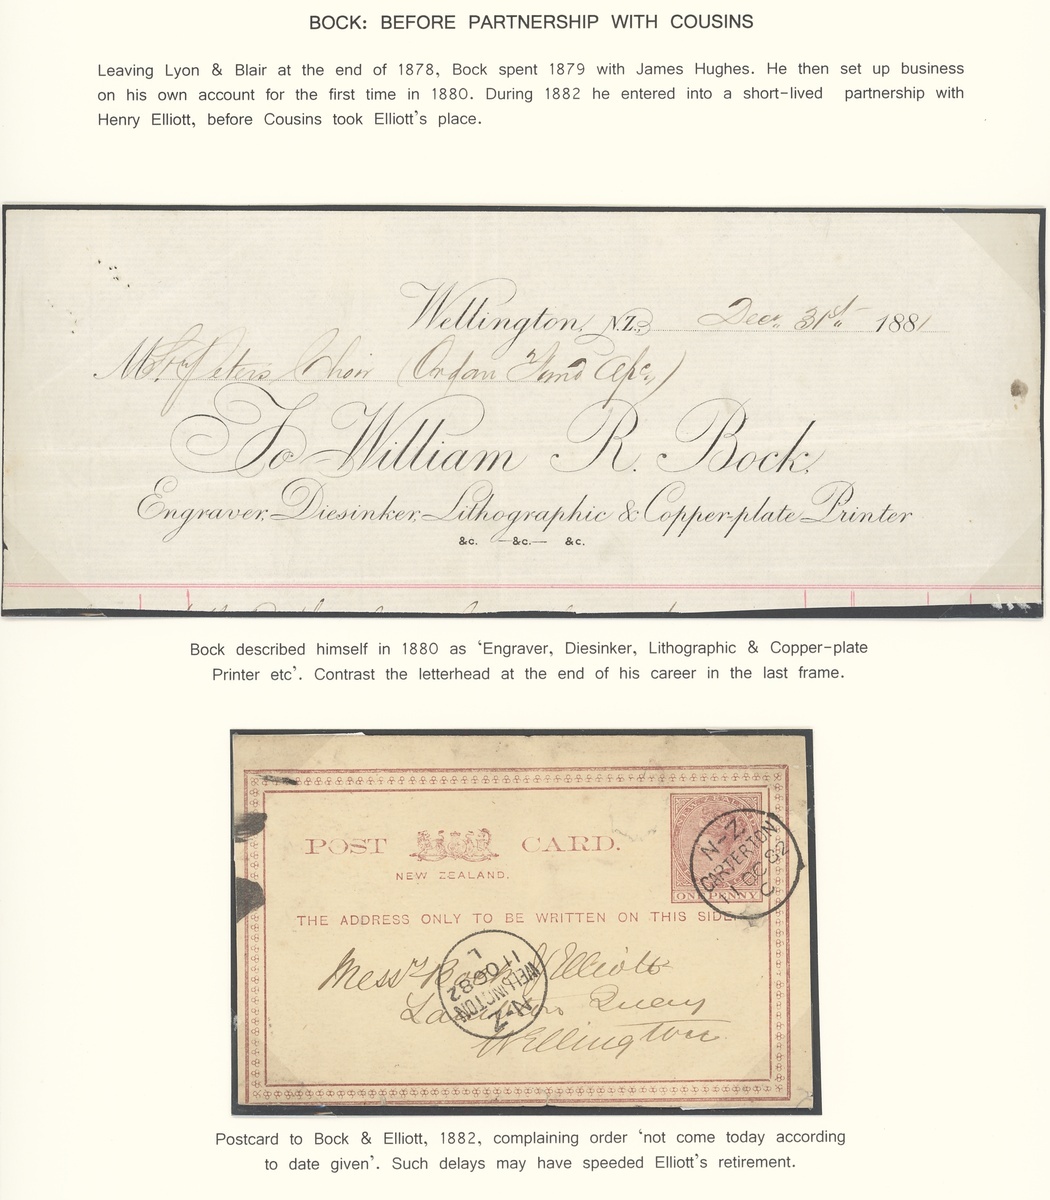 BOCK: BEFORE PARTNERSHIP WITH COUSINS
Leaving Lyon & Blair at the end of 1878, Bock spent 1879 with James Hughes. He then set up business
on his own account for the first time in 1880. During 1882 he entered into a short-lived partnership with
Henry Elliott, before Cousins took Elliott's place.
Wellington, N.Z., Decr. 31st. 1881
Peters Choir (Organ Fund
To William R. Bock,
Engraver, Diesinker, Lithographic & Copper-plate Printer
&c. &c. &c.
Bock described himself in 1880 as 'Engraver, Diesinker, Lithographic & Copper-plate
Printer etc'. Contrast the letterhead at the end of his career in the last frame.
POST CARD.
NEW ZEALAND.
ONE PENNY
N-Z
CARTERTON
11 OC 82
C
THE ADDRESS ONLY TO BE WRITTEN ON THIS SIDE.
Messrs Elliott
Quay
Wellington
N-Z
WELLINGTON
11 OC 82
L
Postcard to Bock & Elliott, 1882, complaining order 'not come today according
to date given'. Such delays may have speeded Elliott's retirement.